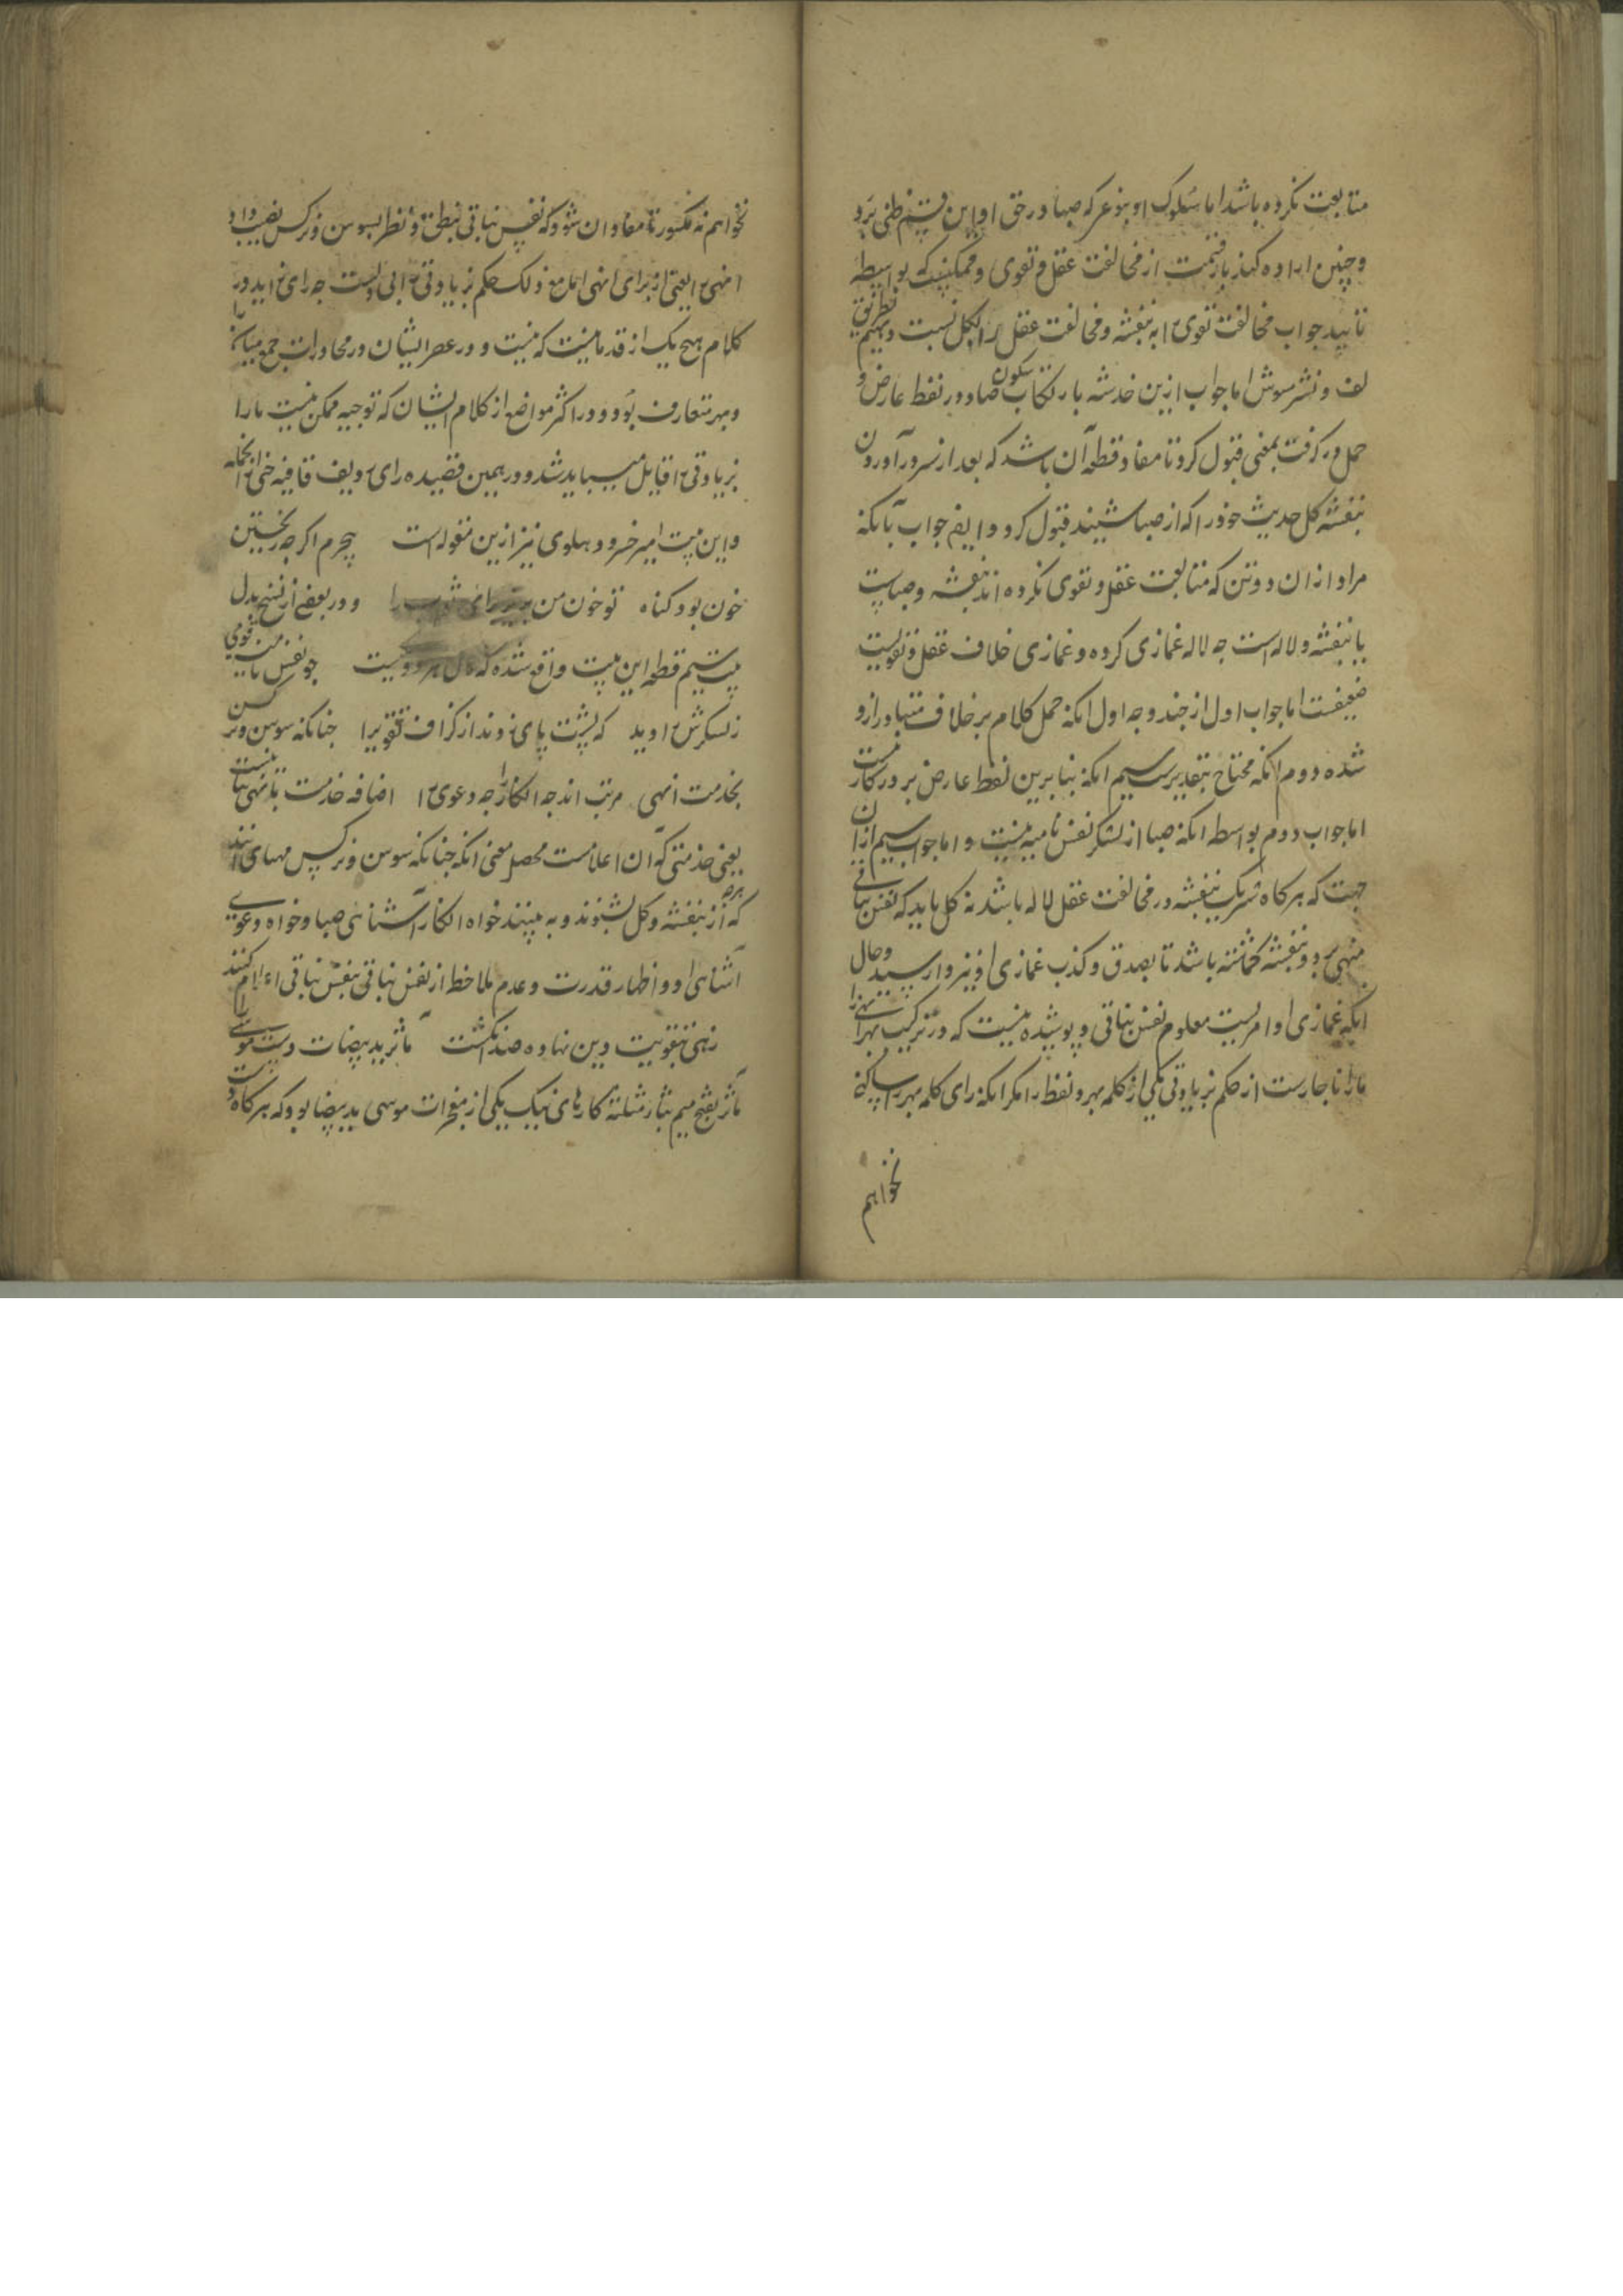 متابعت نکرده باشد اما سلوک او بنوعی که صبا در حق او این قسم ظنی برد
و چنین اراده کند باز قسمت از مخالفت عقل و تقوی و ممکنست که بواسطه
تایید جواب مخالفت تقوی را به بنفشه و مخالفت عقل را بکل نسبت دهیم بطریق
لف و نشر مشوش اما جواب ازین خدشه بارتکاب سکون صاد و در لفظ عارض و
حمل در گرفت بمعنی قبول کرد تا مفاد قطعه آن باشد که بعد از سر در آوردن
بنفشه گل حدیث خود را که از صبا شنیند قبول کرد و ایضا جواب بآنکه
مراد از ان دو تن که متابعت عقل و تقوی نکرده اند بنفشه و صباست
یا بنفشه و لاله است چه لاله غمازی کرده و غمازی خلاف عقل و تقویست
ضعیفست اما جواب اول از چند وجه اول انکه حمل کلام بر خلاف متبادر ازو
شده دوم انکه محتاج بتقدیر سیم انکه بنابرین لفظ عارض بر در کار نیست
اما جواب دوم بواسطه انکه صبا از لشکر نفس نامیه نیست و اما جواب سیم از ان
جهت که هر کاه شریک بنفشه در مخالفت عقل لاله باشد نه گل باید که نفس نباتی
منهی بر دو بنفشه گماشته باشد تا بصدق و کذب غمازی او نیز وارسید و حال
انکه غمازی او امریست معلوم نفس نباتی و پوشیده نیست که در ترکیب بهر انهی را
ما را ناچارست از حکم بزیادتی یکی از کلمه بهر و لفظ را مگر انکه رای کلمه بهر را ساکن
نخواهیم
نخواهیم نه مکسور تا مفاد ان شود که نفس نباتی نطق و نظر بسوسن و نرگس نصیب داد
انهی را یعنی از برای انهی اما مع ذلک حکم بزیادتی را اولی و انسب است چه رای زاید در
کلام هیچ یک از قدما نیست که نیست و در عصر ایشان در محاورات جمع میان را
و بهر متعارف بود و در اکثر مواضع از کلام ایشان که توجیه ممکن نیست ما را
بزیادتی را قایل میباید شد و در همین قصیده رای ردیف قافیه از انجمله
و این بیت امیر خسرو دهلوی نیز ازین مقوله است بجرم اگر چه ریختن
خون بود گناه تو خون من بریز برای ثواب را و در بعضی از نسخ بدل
بیت سیم قطعه این بیت واقع شده که چو نفس نامیه قومی
ز لشکرش را دید که پشت پای زدند از گزاف تقوی را چنانکه سوسن و نرگس
بخدمت انهی مرتب اند چه انکار را چه دعوی را اضافه خدمت بانهی
یعنی خدمتی که آن اعلامست محصل معنی انکه چنانکه سوسن و نرگس مهیای انند
که هرچه از بنفشه و گل بشنوند و به بینند خواه انکار آشنائی صبا و خواه دعوی
آشنائی او و اظهار قدرت و عدم ملاحظه از نفس نباتی بنفس نباتی اعلام کنند
زهی بتقویت دین نهاده صد انگشت مآثر ید بیضات دست موسی را
مآثر بفتح میم بثاء مثلثه کارهای نیک یکی از معجزات موسی ید بیضا بود که هر کاه